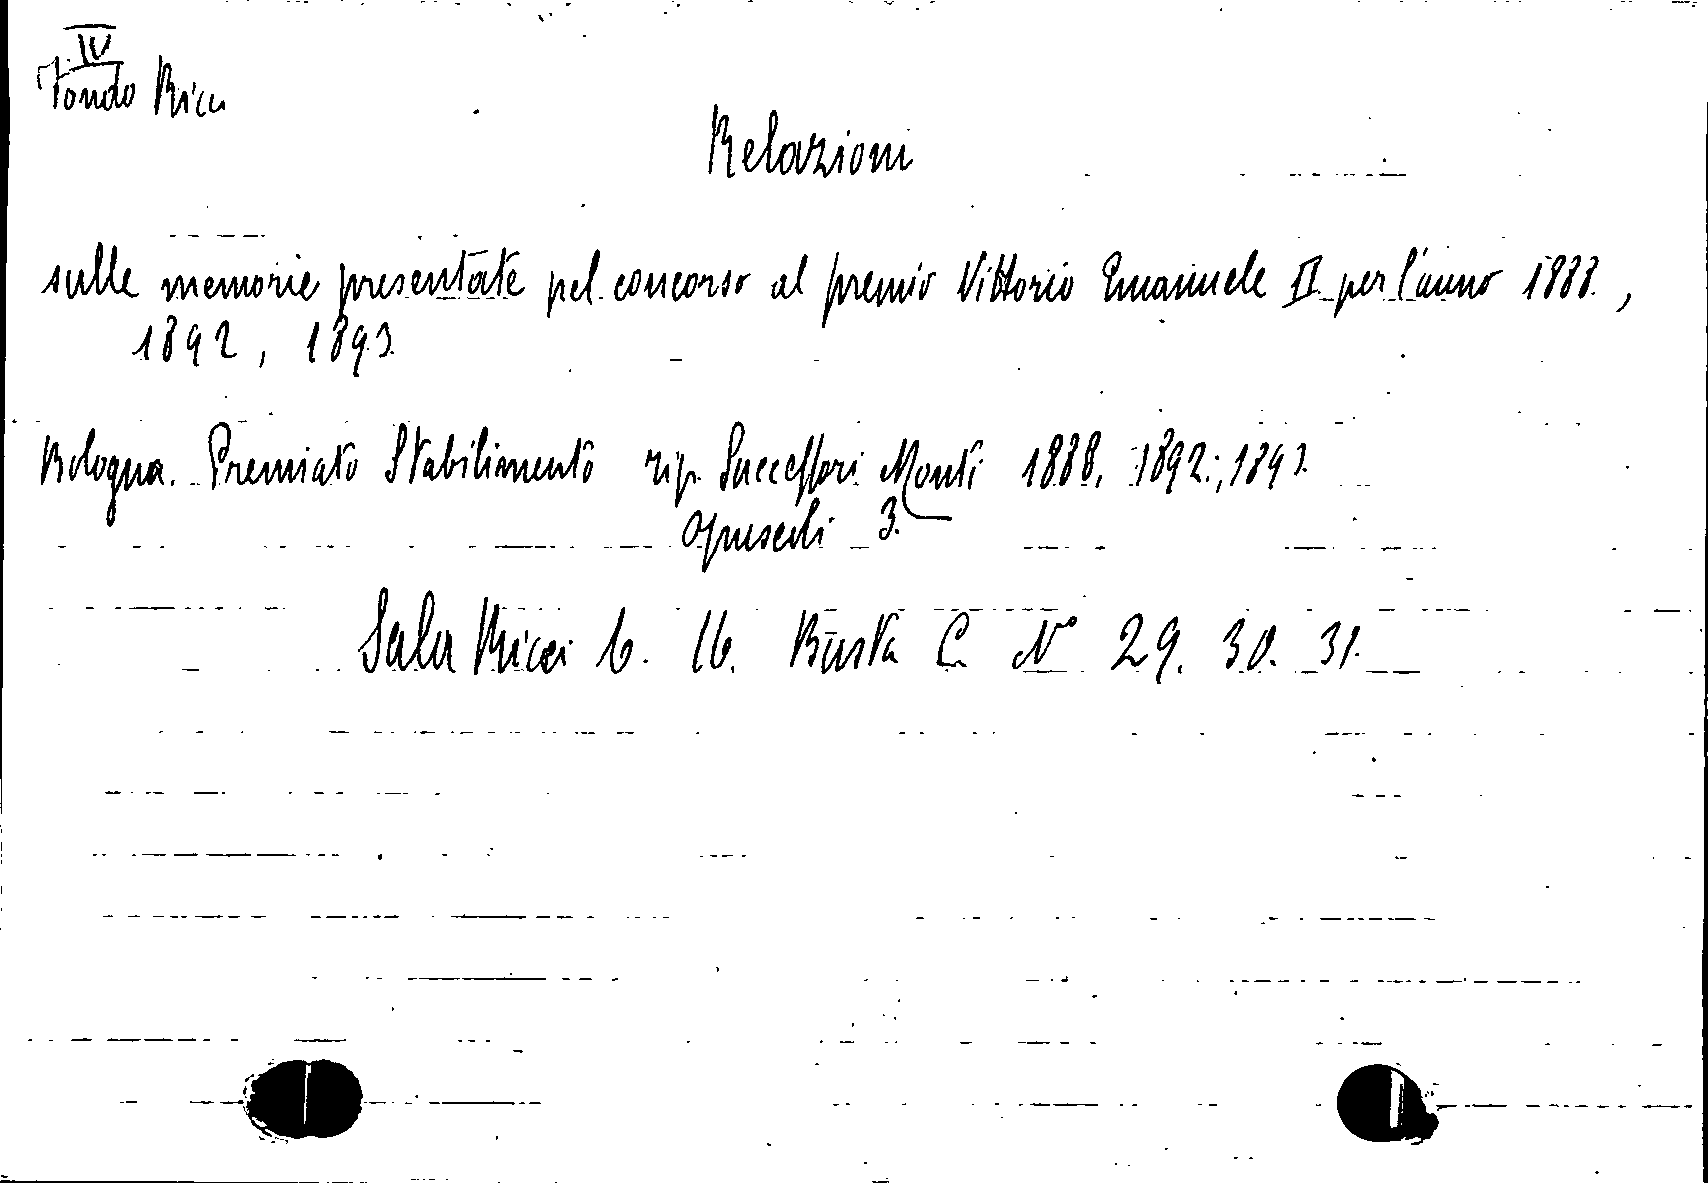 IV
Fondo Ricci
Relazioni
sulle memorie presentate pel concorso al premio Vittorio Emanuele II per l'anno 1888.,
1892, 1893.
Bologna. Premiato Stabilimento tip. Successori Monti 1888. 1892., 1893.
Opuscoli 3.
Sala Ricci 6. 16. Busta C. N° 29. 30. 31.